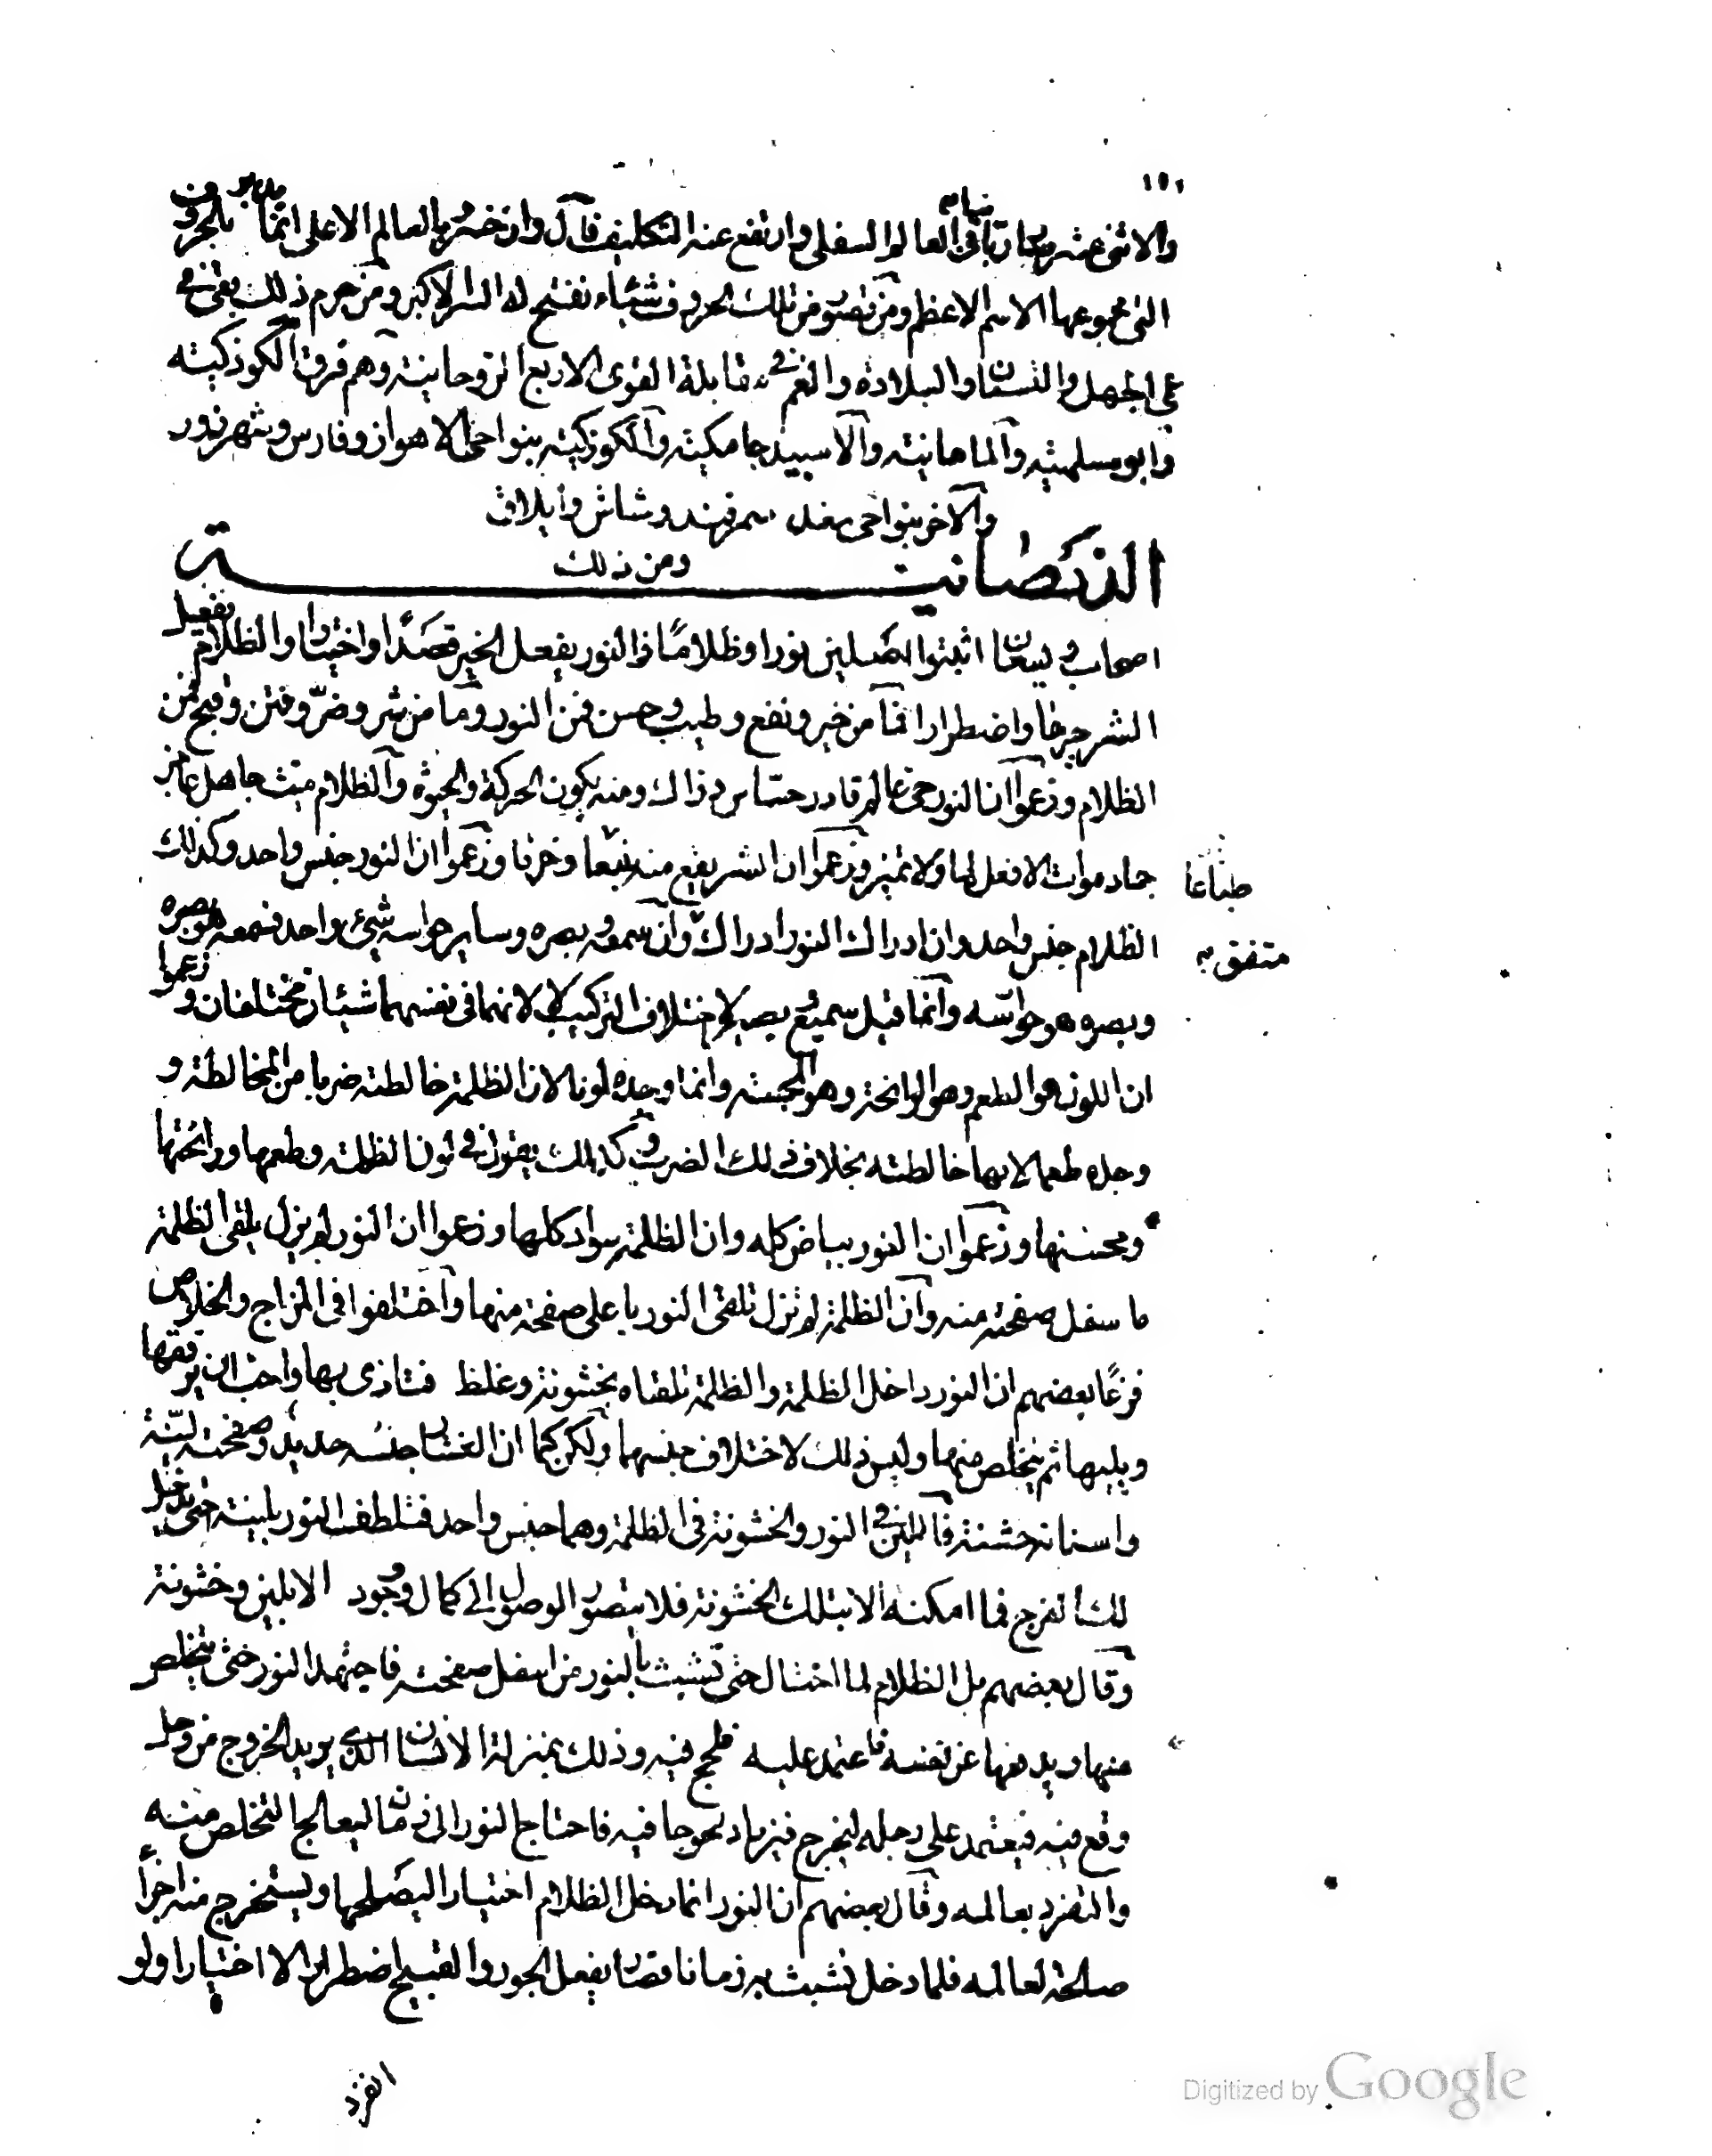 والاثنى عشر صار ربانيا فى العالم السفلى وارتفع عنه التكليف قال وان خسرو بالعالم الاعلى انما يدبر بالحروف
التى مجموعها الاسم الاعظم ومن تصور من تلك الحروف شيئا انفتح له السر الاكبر ومن حرم ذلك بقى فى
عمى الجهل والنسيان والبلادة والغم فى مقابلة القوى الاربع الروحانية وهم فرق الكوذكية
وابو مسلمية والماهانية والاسبيدجامكية والكوذكية بنواحى الاهواز وفارس وشهرزور
والاخر بنواحى سغد سمرقند وشاش وايلاق
ومن ذلك
الديصانية
اصحاب ديصان اثبتوا اصلين نورا وظلاما فالنور يفعل الخير قصدا واختيارا والظلام يفعل
الشر طبعا واضطرارا فما من خير ونفع وطيب وحسن فمن النور وما من شر وضر ونتن وقبح فمن
الظلام وزعموا ان النور حى عالم قادر حساس دراك ومنه يكون الحركة والحيوة والظلام ميت جاهل عاجز
جماد موات لا فعل لها ولا تمييز وزعموا ان الشر يقع منه طباعا وخرقا وزعموا ان النور جنس واحد وكذلك
طباعا
الظلام جنس واحد وان ادراك النور ادراك وان سمعه وبصره وساير حواسه شىء واحد فسمعه هو بصره
متفق
وبصره هو حواسه وانما قيل سميع بصير لاختلاف التركيب لا لانهما فى نفسهما شيئان مختلفان وزعموا
ان اللون هو الطعم وهو الرائحة وهو المجسة وانما وجده لونا لان الظلمة خالطته ضربا من المخالطة و
وجده طعما لانها خالطته بخلاف ذلك الضرب وكذلك يقول فى لون الظلمة وطعمها ورائحتها
ومجستها وزعموا ان النور بياض كله وان الظلمة سواد كلها وزعموا ان النور لم يزل يلقى الظلمة
باسفل صفحة منه وان الظلمة لم تزل تلقى النور باعلى صفحة منها واختلفوا فى المزاج والخلاص
فزعم بعضهم ان النور داخل الظلمة والظلمة تلقاه بخشونة وغلظ فتاذى بها واحب ان يرققها
ويلينها ثم يتخلص منها وليس ذلك لاختلاف جنسهما ولكن كما ان المنشار جنسه حديد وصفحته لينة
واسنانه خشنة فاللين فى النور والخشونة فى الظلمة وهما جنس واحد فتلطف النور بلينه حتى يدخل
تلك الفرج فما امكنه الا بتلك الخشونة فلا يتصور الوصول الى كمال وجود الا بلين وخشونة
وقال بعضهم بل الظلام لما احتال حتى تشبث بالنور من اسفل صفحته فاجتهد النور حتى يتخلص
منها ويدفعها عن نفسه فاعتمد عليه فلجج فيه وذلك بمنزلة الانسان الذى يريد الخروج من وحل
وقع فيه فيعتمد على رجله ليخرج فيزداد لحوجا فيه فاحتاج النور الى زمان ليعالج التخلص منه
والتفرد بعالمه وقال بعضهم ان النور انما دخل الظلام اختيارا ليصلحها ويستخرج منها اجزأ
صالحة لعالمه فلما دخل تشبث به زمانا فصار يفعل الجور والقبيح اضطرارا لا اختيارا ولو
انفرد
Digitized by Google